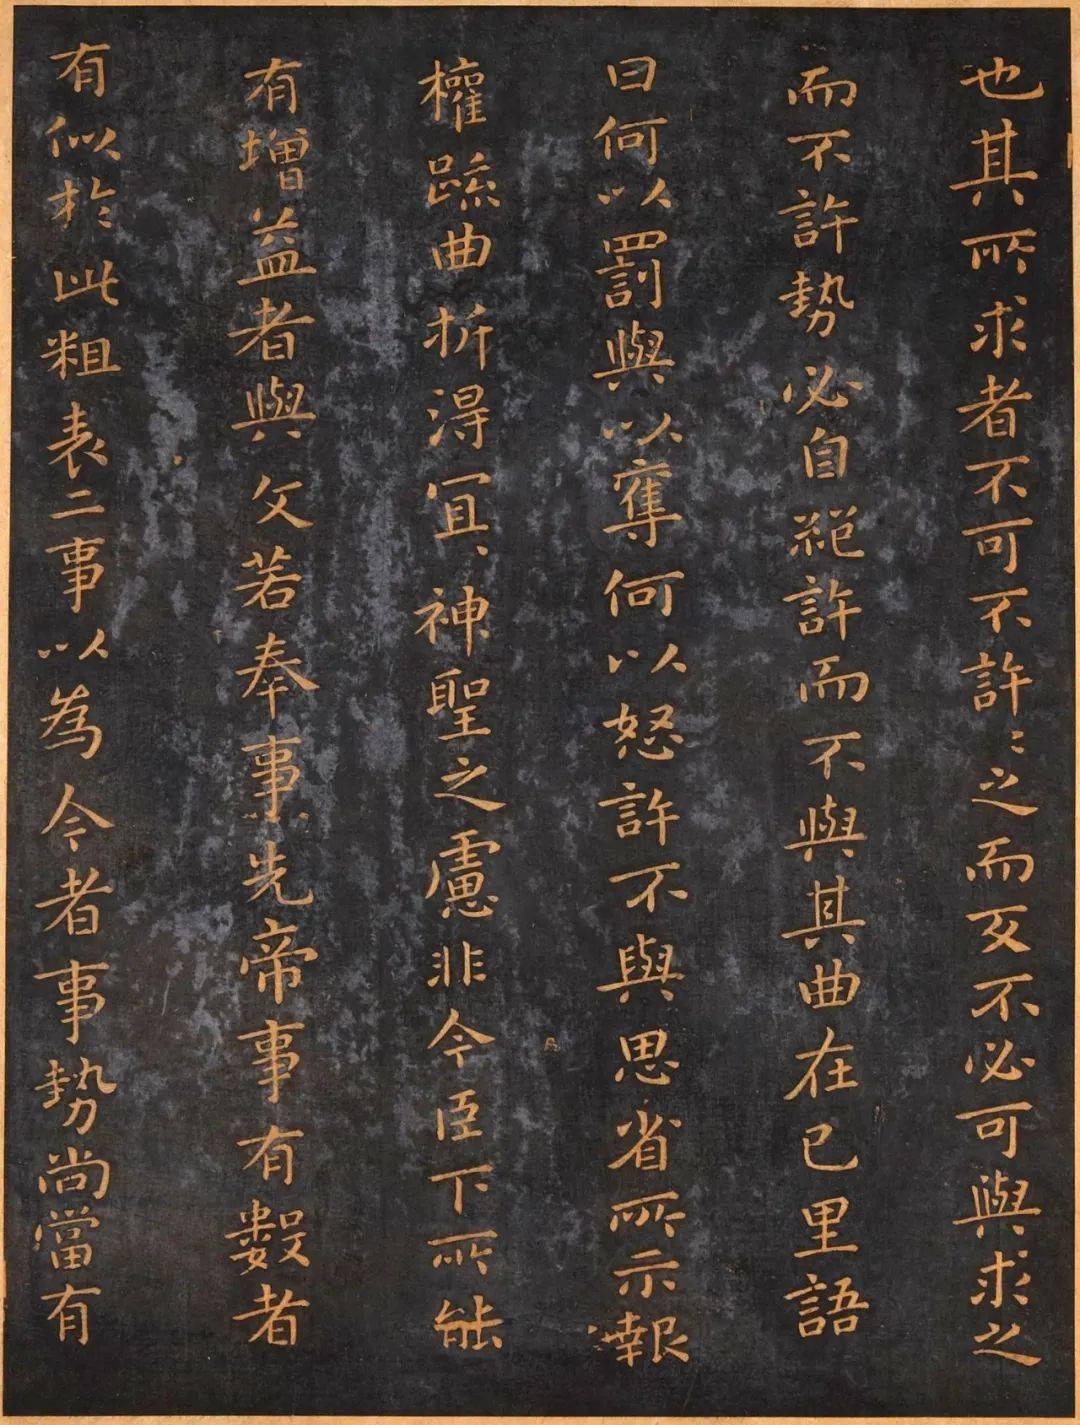 也其所求者不可不許許之而反不必可與求之
而不許勢必自絕許而不與其曲在己里語
曰何以罰與以奪何以怒許不與思省所示報
權疏曲折得宜神聖之慮非今臣下所能
有增益者與文若奉事先帝事有數者
有似於此粗表二事以為今者事勢尚當有